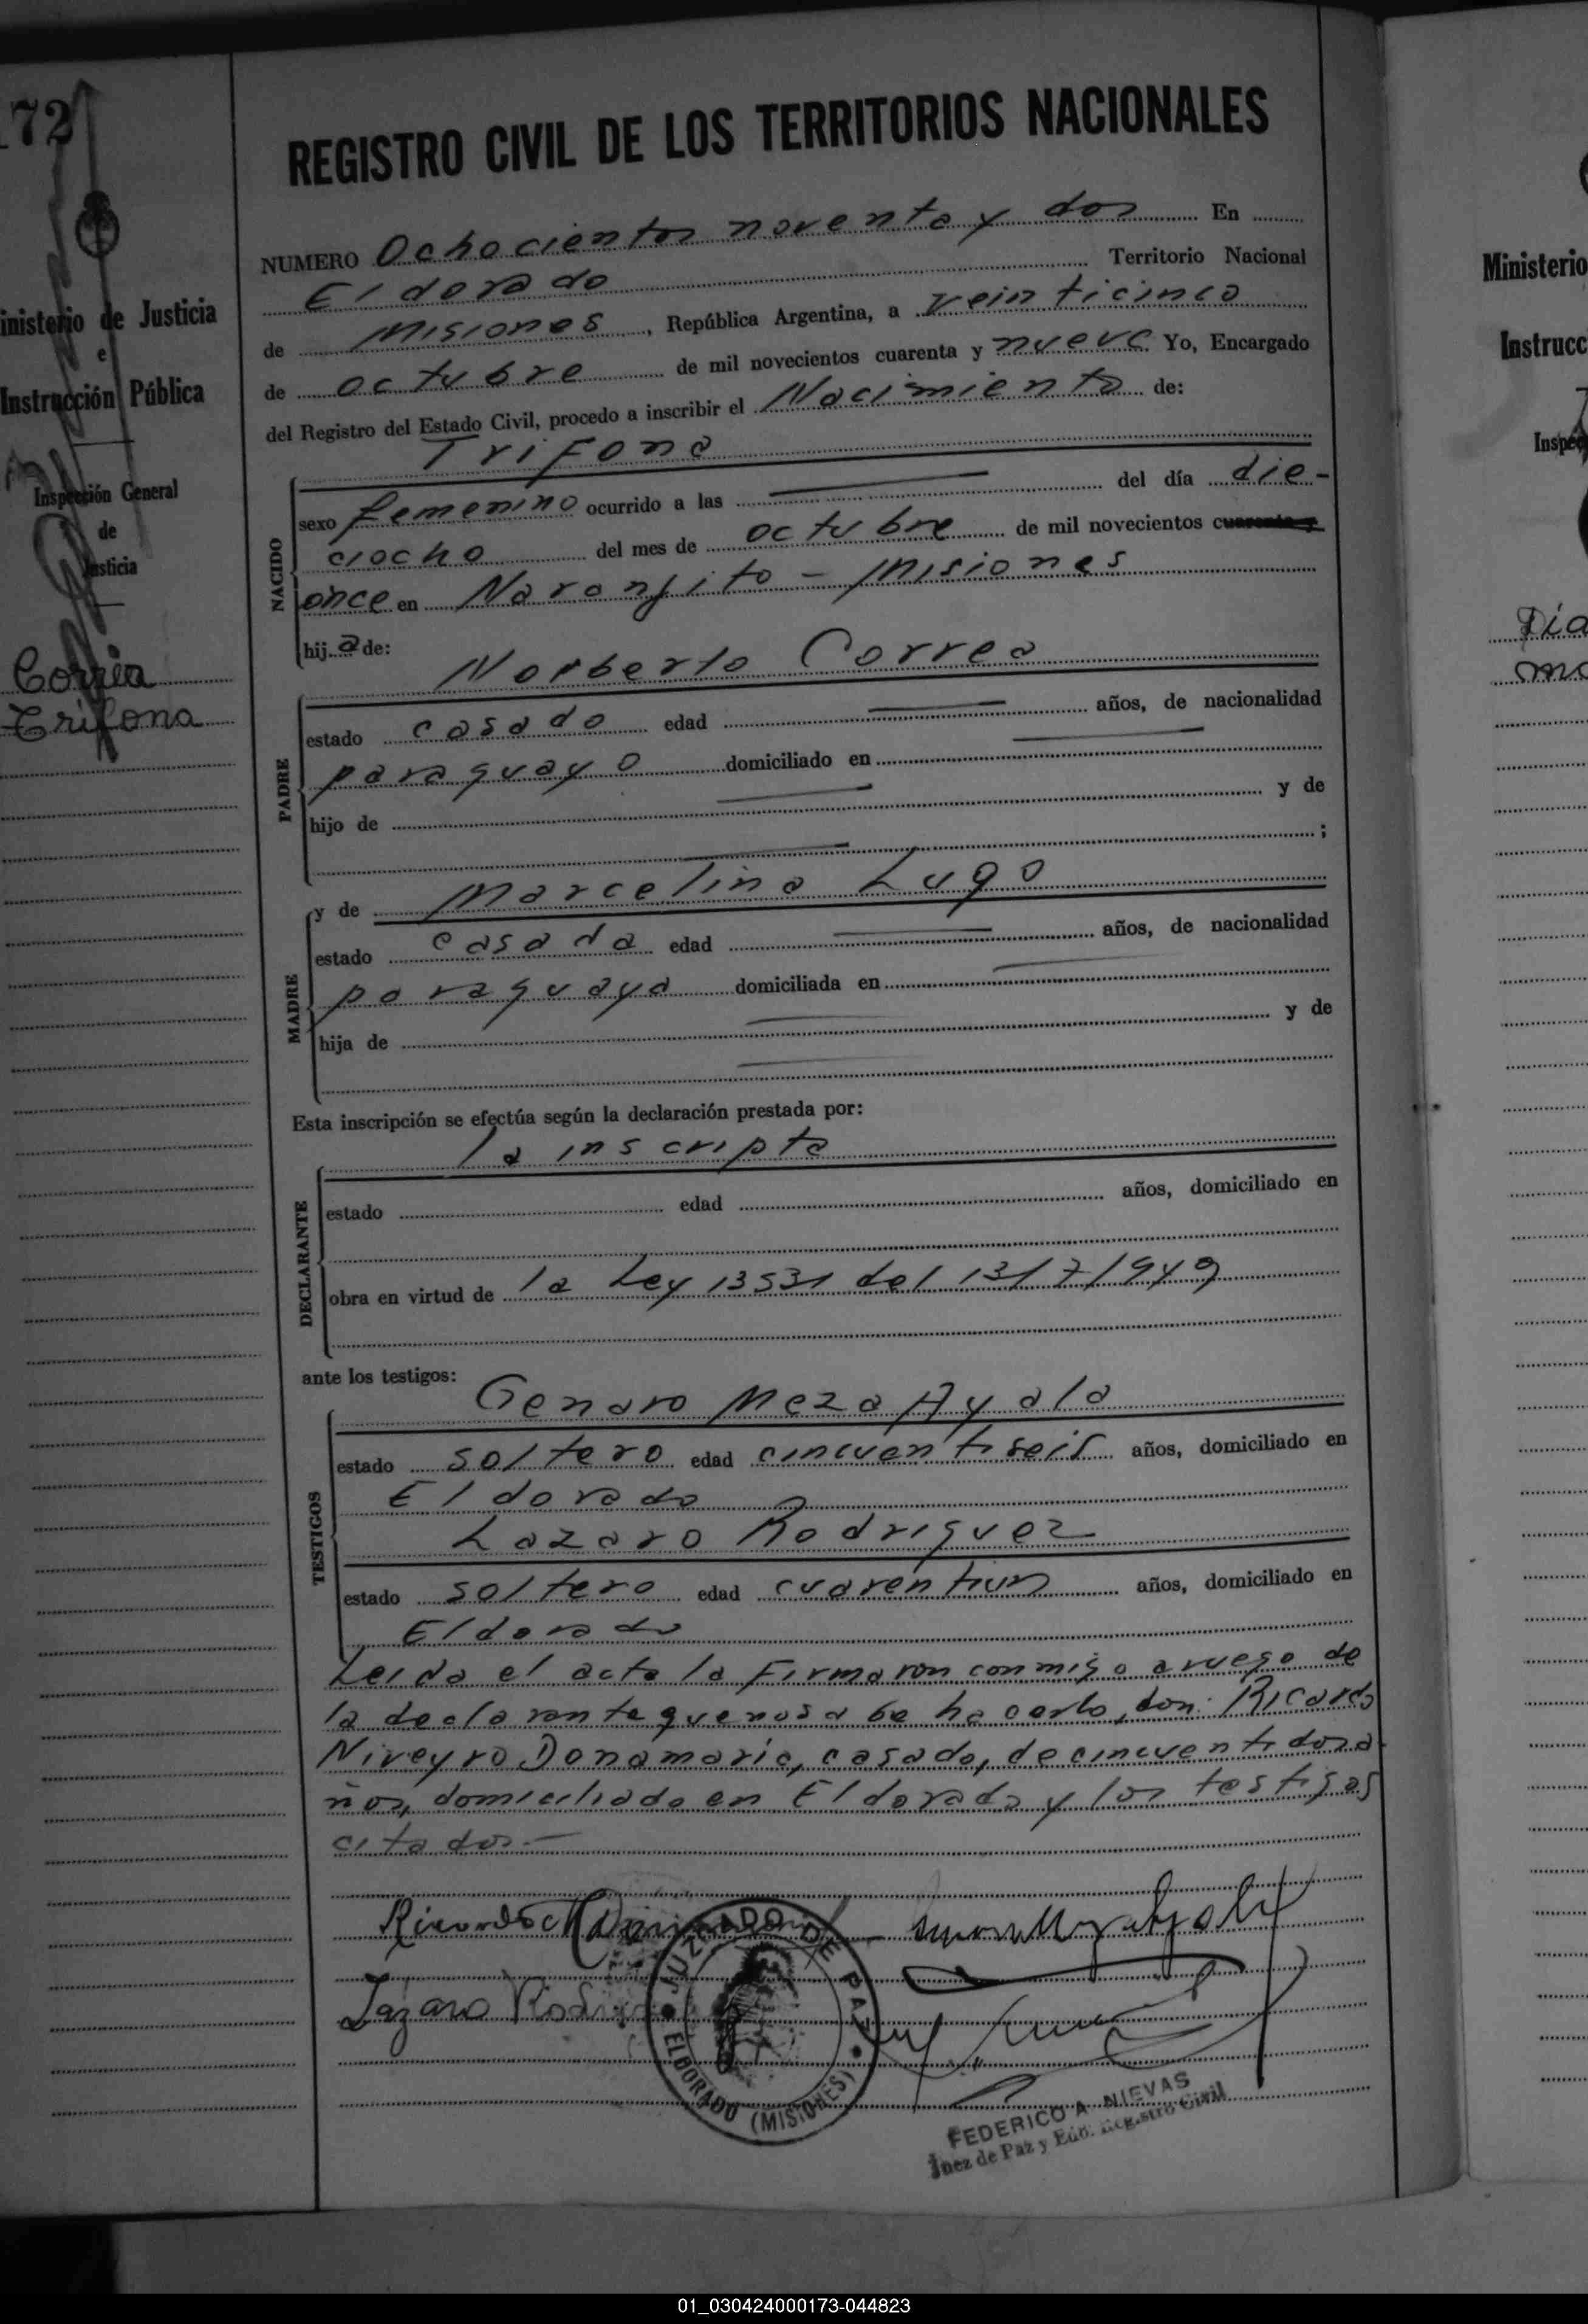 172
Ministerio de Justicia
e
Instrucción Pública
Inspección General
de
Justicia
Correa
Trifona
REGISTRO CIVIL DE LOS TERRITORIOS NACIONALES
NUMERO Ochocientos noventa y dos En
Eldorado Territorio Nacional
de Misiones, República Argentina, a veinticinco
de octubre de mil novecientos cuarenta y nueve Yo, Encargado
del Registro del Estado Civil, procedo a inscribir el Nacimiento de:
Trifona
NACIDO
sexo femenino ocurrido a las del día die-
ciocho del mes de octubre de mil novecientos cuarenta y
once en Naranjito - Misiones
hija de:
Norberto Correa
PADRE
estado casado edad años, de nacionalidad
paraguayo domiciliado en
hijo de y de
;
y de Marcelina Lugo
MADRE
estado casada edad años, de nacionalidad
paraguaya domiciliada en
hija de y de
Esta inscripción se efectúa según la declaración prestada por:
la inscripta
DECLARANTE
estado edad años, domiciliado en
obra en virtud de la Ley 13531 del 13/7/949
ante los testigos:
Genaro Meza Ayala
TESTIGOS
estado soltero edad cincuentiseis años, domiciliado en
Eldorado
Lazaro Rodriguez
estado soltero edad cuarentiun años, domiciliado en
Eldorado
Leida el acta la firmaron conmigo a ruego de
la declarante que no sabe hacerlo, don Ricardo
Niveyro Donamaria, casado, de cincuentidos a-
ños, domiciliado en Eldorado y los testigos
citados.-
Ricardo
Lazaro Rodriguez
JUZGADO DE PAZ
ELDORADO (MISIONES)
FEDERICO A. NIEVAS
Juez de Paz y Enc. Registro Civil
Ministerio
Instrucc
Inspec
Día
01_030424000173-044823